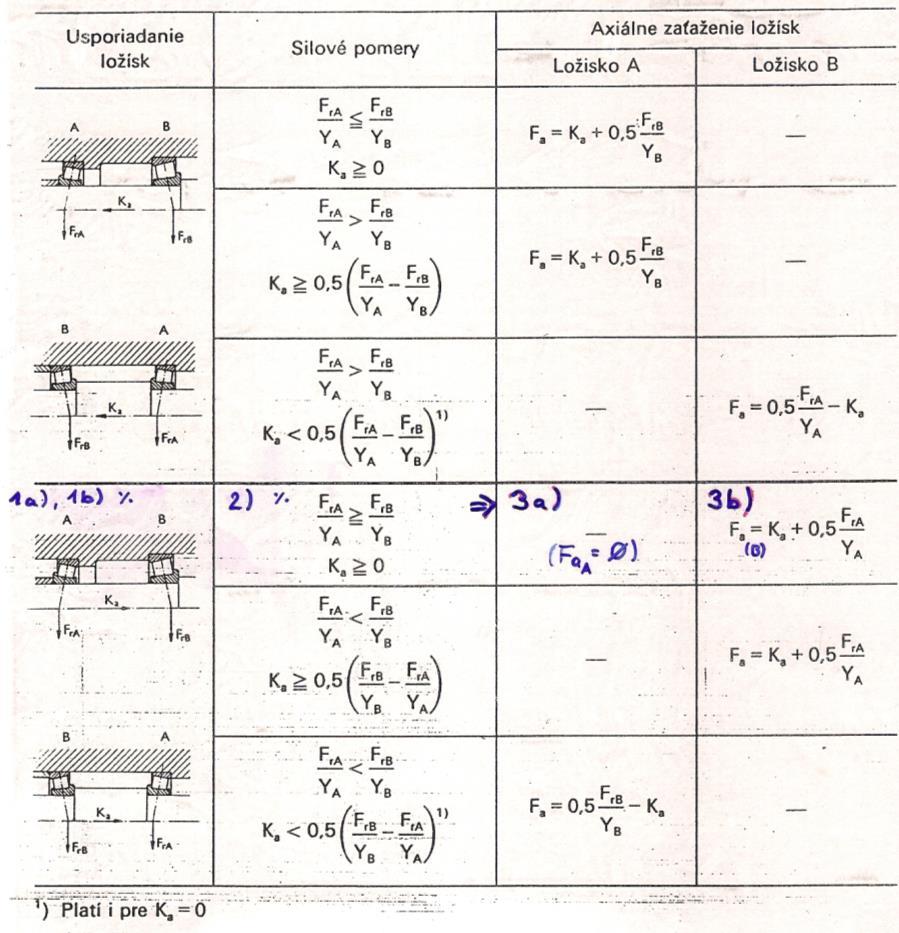 Usporiadanie
ložísk
Silové pomery
Axiálne zaťaženie ložísk
Ložisko A
Ložisko B
A B
Kₐ
FrA
FrB
FrA/YA ≦ FrB/YB
Kₐ ≧ 0
Fₐ = Kₐ + 0,5 FrB/YB
—
FrA/YA > FrB/YB
Kₐ ≧ 0,5 (FrA/YA − FrB/YB)
Fₐ = Kₐ + 0,5 FrB/YB
—
B A
Kₐ
FrB
FrA
FrA/YA > FrB/YB
Kₐ < 0,5 (FrA/YA − FrB/YB) ¹⁾
—
Fₐ = 0,5 FrA/YA − Kₐ
1a), 1b) %
A B
Kₐ
FrA
FrB
2) %
FrA/YA ≧ FrB/YB
Kₐ ≧ 0
⇒ 3a)
—
(FaA = Ø)
3b)
Fₐ = Kₐ + 0,5 FrA/YA
(B)
FrA/YA < FrB/YB
Kₐ ≧ 0,5 (FrB/YB − FrA/YA)
—
Fₐ = Kₐ + 0,5 FrA/YA
B A
Kₐ
FrB
FrA
FrA/YA < FrB/YB
Kₐ < 0,5 (FrB/YB − FrA/YA) ¹⁾
Fₐ = 0,5 FrB/YB − Kₐ
—
¹) Platí i pre Kₐ = 0